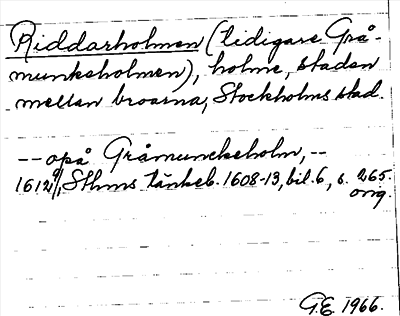 Riddarholmen (tidigare Grå-
munkeholmen), holme, staden
mellan broarna, Stockholms stad.
-- opå Gråmunckeholm, --
1612 9/1, Sthms tänkeb. 1608-13, bil. 6, s. 265.
orig.
G.E. 1966.